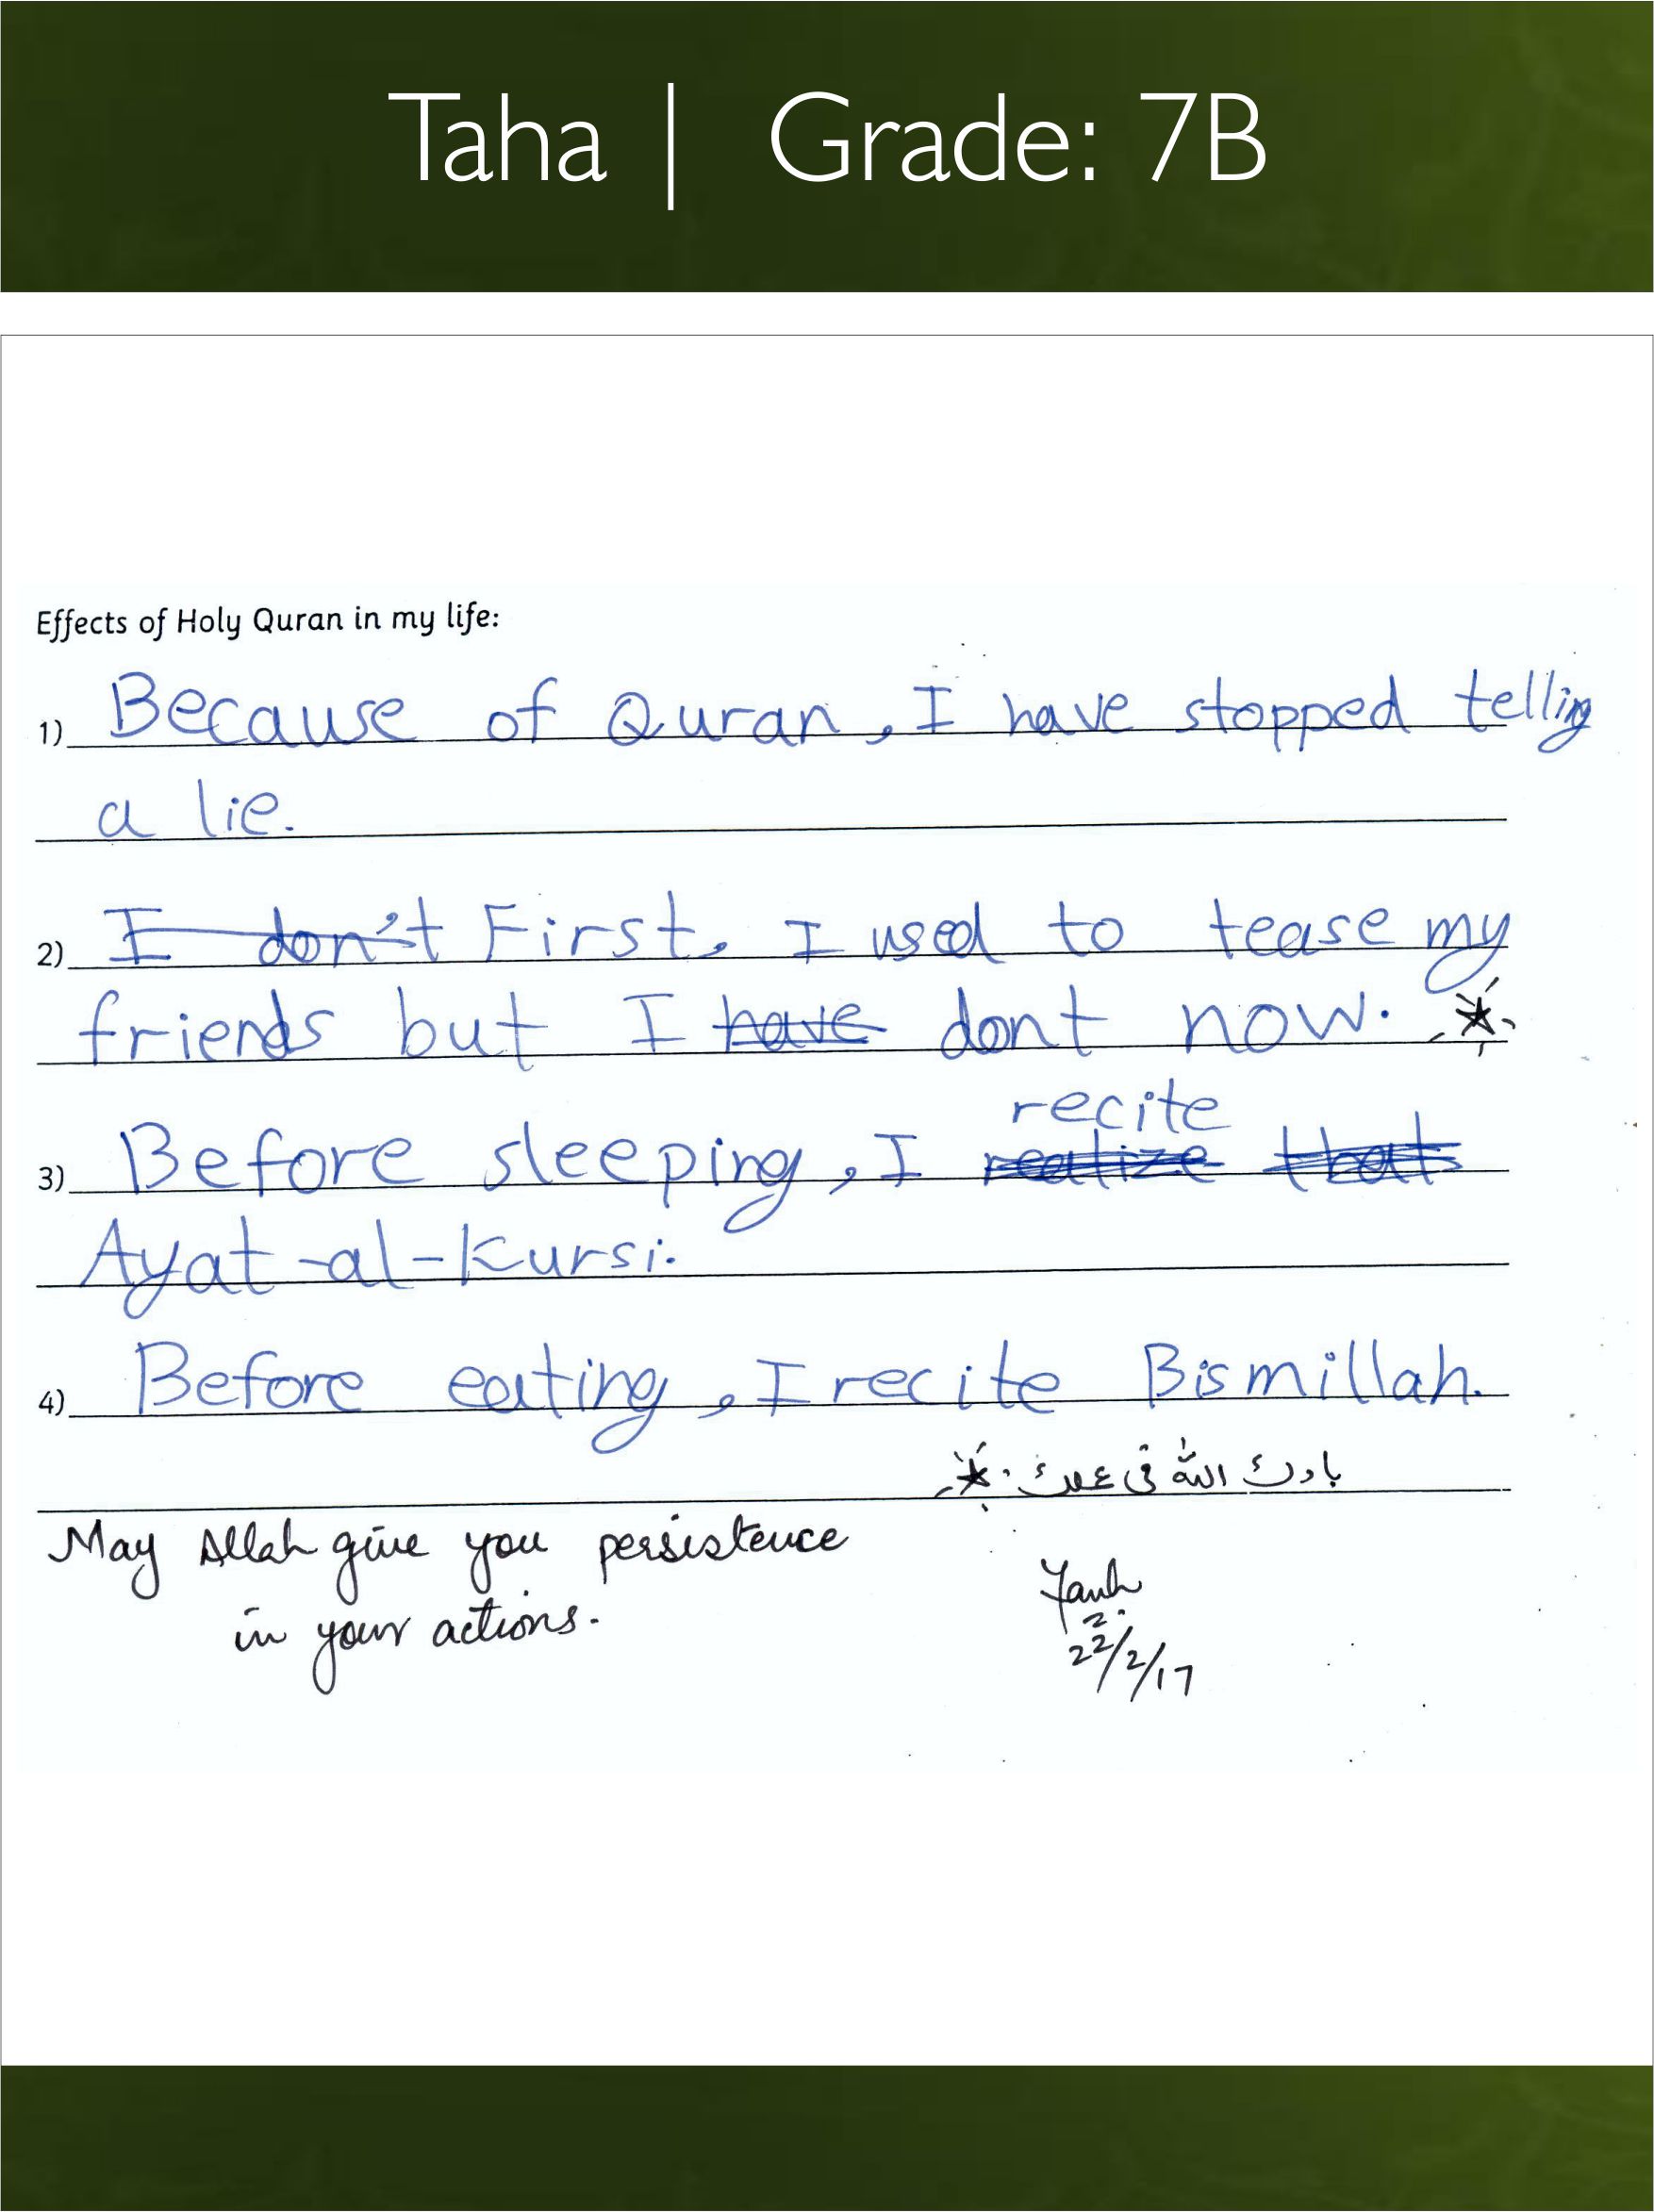 Taha | Grade: 7B
Effects of Holy Quran in my life:
1) Because of Quran, I have stopped telling
a lie.
2) I don't First, I used to tease my
friends but I have dont now.
recite
3) Before sleeping, I realize that
Ayat-al-Kursi.
4) Before eating, I recite Bismillah.
بارك الله في
May Allah give you persistence
in your actions.
22/2/17